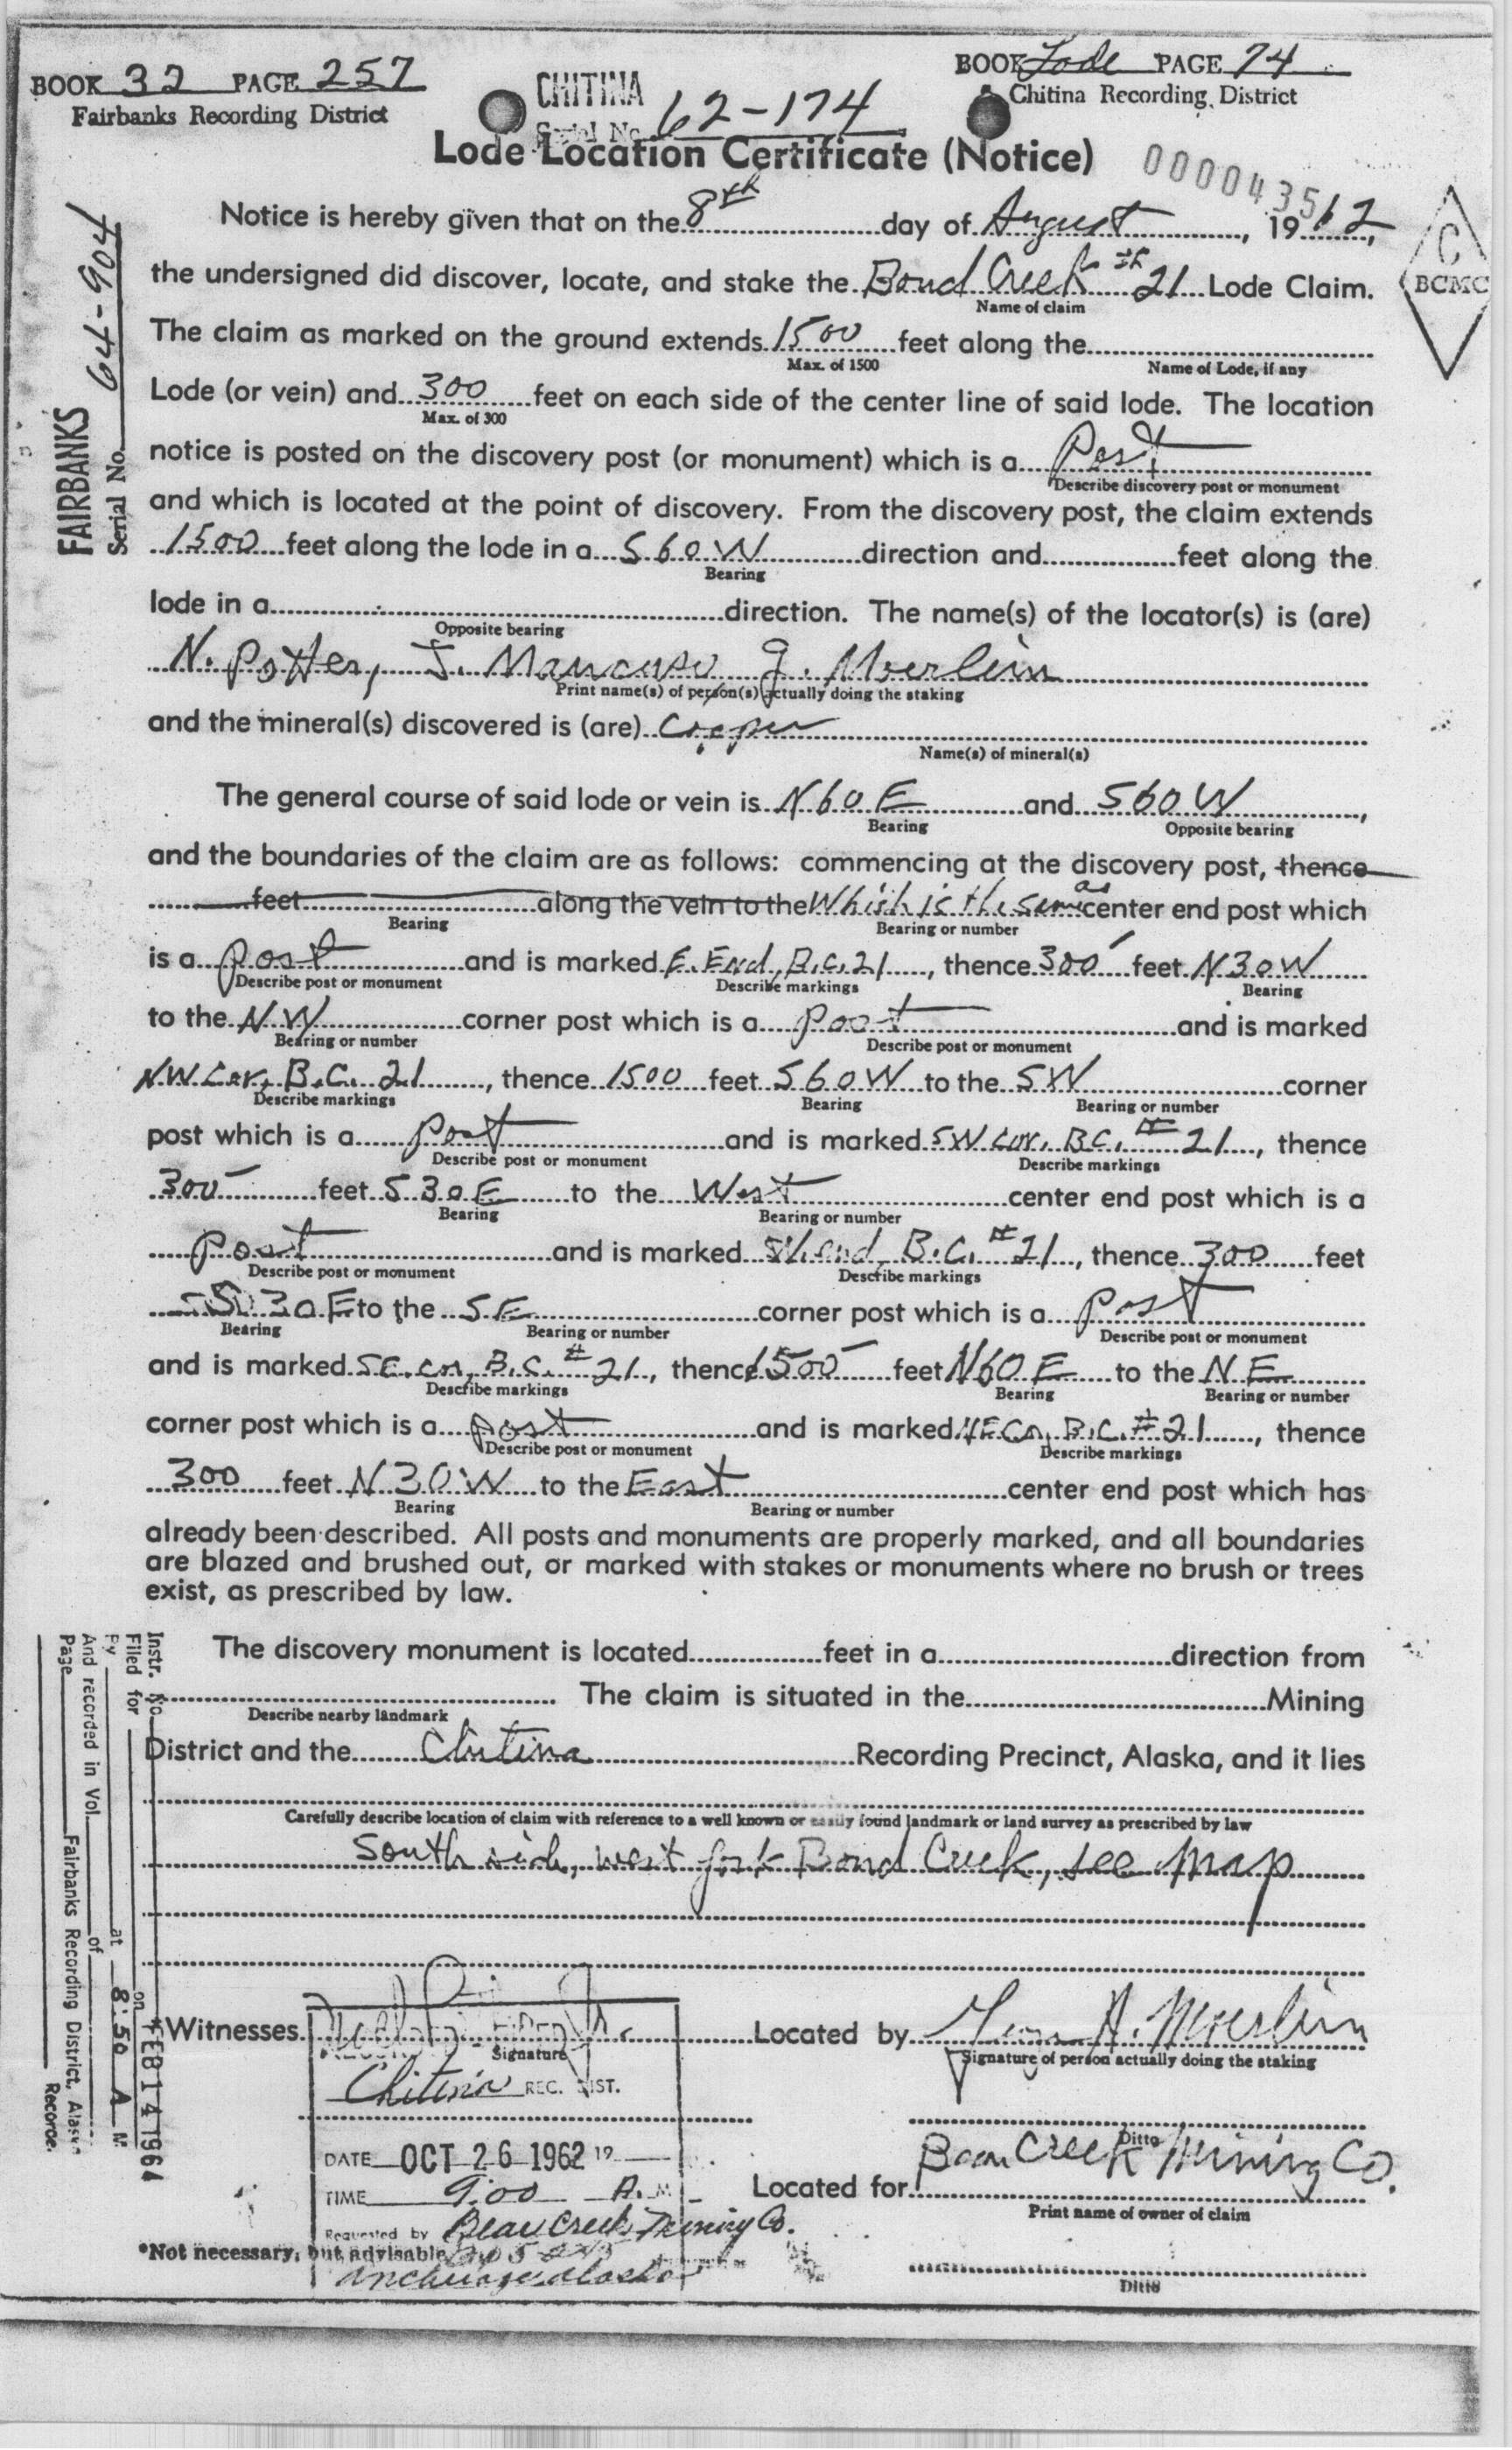 BOOK 32 PAGE 257
Fairbanks Recording District
CHITINA
Serial No. 62-174
BOOK Lode PAGE 74
Chitina Recording District
Lode Location Certificate (Notice)
000043562
FAIRBANKS
Serial No. 64-904
C
BCMC
Notice is hereby given that on the 8th day of August, 1962,
the undersigned did discover, locate, and stake the Bond Creek # 21 Lode Claim.
Name of claim
The claim as marked on the ground extends 1500 feet along the
Max. of 1500 Name of Lode, if any
Lode (or vein) and 300 feet on each side of the center line of said lode. The location
Max. of 300
notice is posted on the discovery post (or monument) which is a Post
Describe discovery post or monument
and which is located at the point of discovery. From the discovery post, the claim extends
1500 feet along the lode in a S60W direction and feet along the
Bearing
lode in a direction. The name(s) of the locator(s) is (are)
Opposite bearing
N. Potter, J. Mancuso J. Moerlein
Print name(s) of person(s) actually doing the staking
and the mineral(s) discovered is (are) Copper
Name(s) of mineral(s)
The general course of said lode or vein is N60E and S60W,
Bearing Opposite bearing
and the boundaries of the claim are as follows: commencing at the discovery post, thence
feet along the vein to the Which is the same as center end post which
Bearing Bearing or number
is a post and is marked E. End, B.C. 21, thence 300 feet N30W
Describe post or monument Describe markings Bearing
to the NW corner post which is a post and is marked
Bearing or number Describe post or monument
NW Cor. B.C. 21, thence 1500 feet S60W to the SW corner
Describe markings Bearing Bearing or number
post which is a post and is marked SW Cor. B.C. # 21, thence
Describe post or monument Describe markings
300 feet S30E to the West center end post which is a
Bearing Bearing or number
post and is marked W. end B.C. # 21, thence 300 feet
Describe post or monument Describe markings
S30E to the SE corner post which is a post
Bearing Bearing or number Describe post or monument
and is marked SE. Cor, B.C. # 21, thence 1500 feet N60E to the NE
Describe markings Bearing Bearing or number
corner post which is a post and is marked NE Co, B.C. # 21, thence
Describe post or monument Describe markings
300 feet N30W to the East center end post which has
Bearing Bearing or number
already been described. All posts and monuments are properly marked, and all boundaries
are blazed and brushed out, or marked with stakes or monuments where no brush or trees
exist, as prescribed by law.
The discovery monument is located feet in a direction from
. The claim is situated in the Mining
Describe nearby landmark
District and the Chitina Recording Precinct, Alaska, and it lies
Carefully describe location of claim with reference to a well known or easily found landmark or land survey as prescribed by law
South side, west fork Bond Creek, see map
Instr. No.
Filed for on FEB 14 1964
By at 8:50 A M
And recorded in Vol. of
Page Fairbanks Recording District, Alaska
Recorder
*Witnesses Located by A. Moerlein
Signature Signature of person actually doing the staking
Chitina REC. DIST.
Ditto
DATE OCT 26 1962 19
TIME 9:00 A.M
Located for Bear Creek Mining Co.
Print name of owner of claim
Requested by Bear Creek Mining Co.
*Not necessary, but advisable
Anchorage, Alaska
Ditto